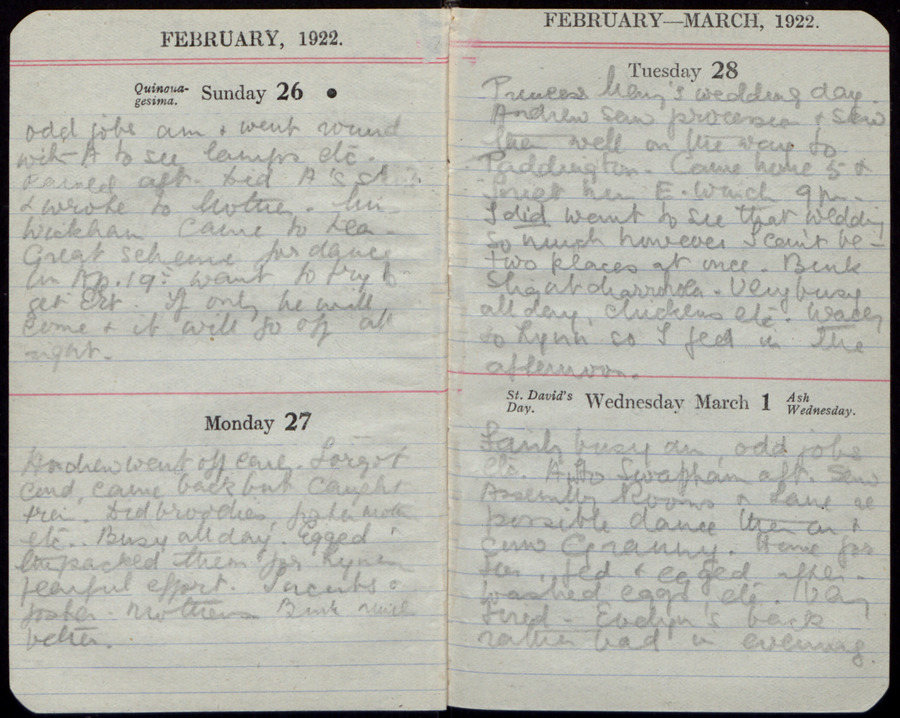 FEBRUARY, 1922.
Quinqua-
gesima.
Sunday 26
odd jobs am & went round
with A to see lamps etc.
rained aft. Did A's
& wrote to Mother.
Wickham came to tea -
Great scheme for dance
on Ap. 19th want to try to
get Ert. If only he will
come & it will go off all
right.
Monday 27
Andrew went off early. Forgot
came back but caught
train. Did broodies, foster moth
etc. Busy all day. Egged &
packed them for Lynn
fearful effort. Incubs &
foster mothers Bink much
better.
FEBRUARY—MARCH, 1922.
Tuesday 28
Princess Mary's wedding day.
Andrew saw procession & saw
her well on the way to
Paddington. Came home 5 &
met her E. Winch 9 pm.
I did want to see that wedding
so much however I can't be -
two places at once. Bink
Very busy
all day, chickens etc.
to Lynn so I fed in the
afternoon.
St. David's
Day.
Wednesday March 1
Ash
Wednesday.
Fairly busy am, odd jobs
etc. A. to Swaffham aft. Saw
Assembly Rooms & Lane re
possible dance there on &
saw Granny. Home for
tea, fed & egged after -
washed eggs etc. Very
tired - Evelyn's back
rather bad in evening.